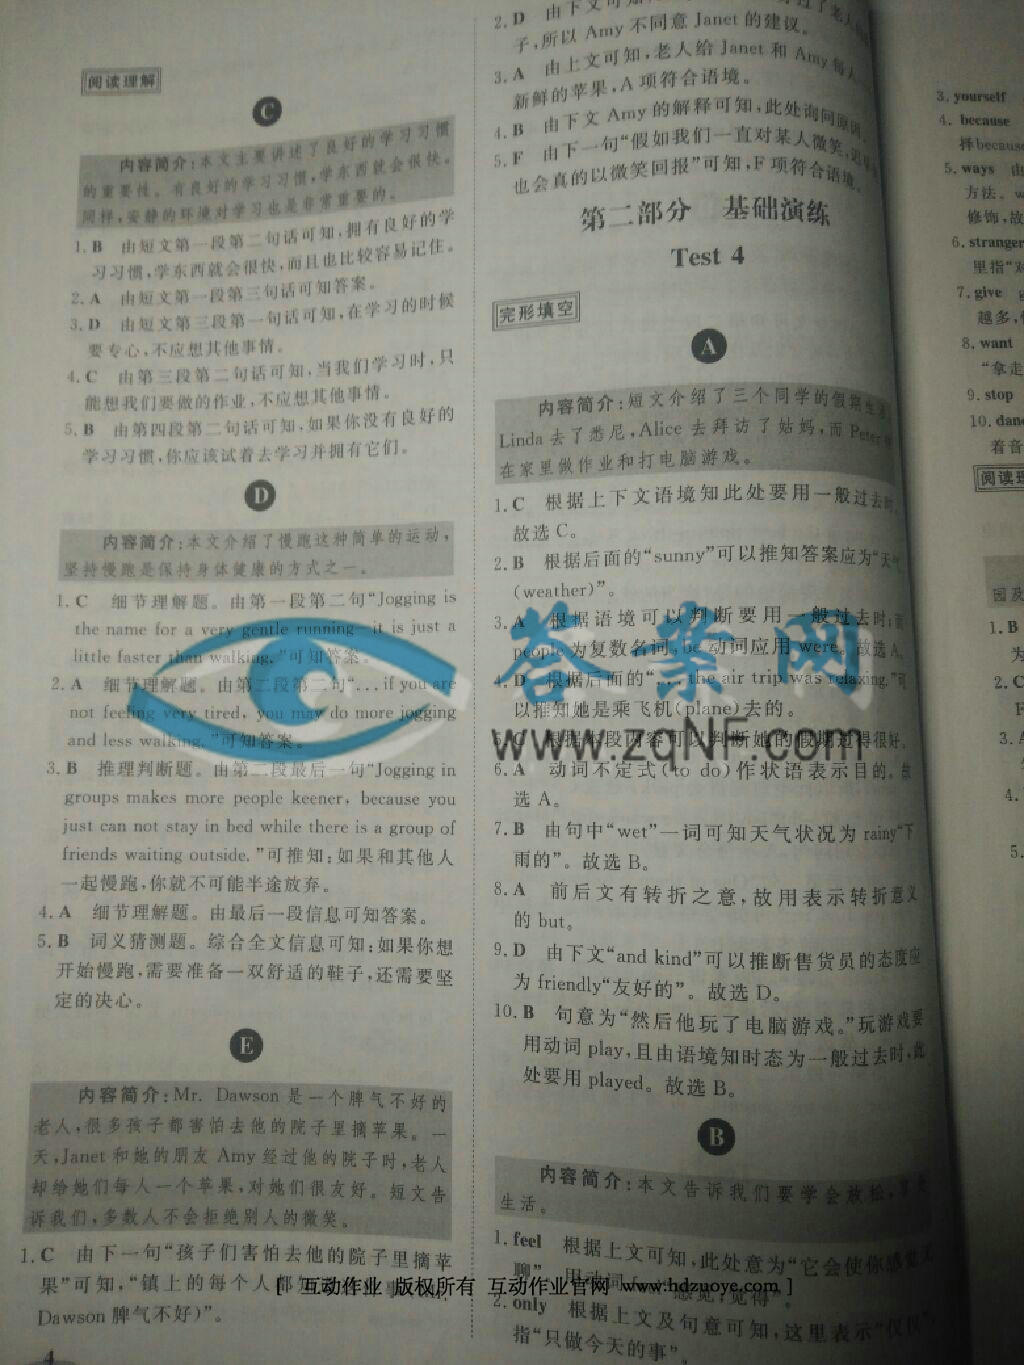 阅读理解
C
内容简介:本文主要讲述了良好的学习习惯
的重要性。有良好的学习习惯,学东西就会很快。
同样,安静的环境对学习也是非常重要的。
1. B 由短文第一段第二句话可知,拥有良好的学
习习惯,学东西就会很快,而且也比较容易记住。
2. A 由短文第一段第三句话可知答案。
3. D 由短文第三段第一句话可知,在学习的时候
要专心,不应想其他事情。
4. C 由第三段第二句话可知,当我们学习时,只
能想我们要做的作业,不应想其他事情。
5. B 由第四段第二句话可知,如果你没有良好的
学习习惯,你应该试着去学习并拥有它们。
D
内容简介:本文介绍了慢跑这种简单的运动,
坚持慢跑是保持身体健康的方式之一。
1. C 细节理解题。由第一段第二句“Jogging is
the name for a very gentle running—it is just a
little faster than walking.”可知答案。
2. A 细节理解题。由第二段第二句“…if you are
not feeling very tired, you may do more jogging
and less walking.”可知答案。
3. B 推理判断题。由第二段最后一句“Jogging in
groups makes more people keener, because you
just can not stay in bed while there is a group of
friends waiting outside.”可推知:如果和其他人
一起慢跑,你就不可能半途放弃。
4. A 细节理解题。由最后一段信息可知答案。
5. B 词义猜测题。综合全文信息可知:如果你想
开始慢跑,需要准备一双舒适的鞋子,还需要坚
定的决心。
E
内容简介:Mr. Dawson 是一个脾气不好的
老人,很多孩子都害怕去他的院子里摘苹果。一
天,Janet 和她的朋友 Amy 经过他的院子时,老人
却给她们每人一个苹果,对她们很友好。短文告
诉我们,多数人不会拒绝别人的微笑。
1. C 由下一句“孩子们害怕去他的院子里摘苹
果”可知,“镇上的每个人都知
Dawson 脾气不好)”。
4
2. D 由下文可知,
子,所以 Amy 不同意 Janet 的建议。
3. A 由上文可知,老人给 Janet 和 Amy 每人
新鲜的苹果,A 项符合语境。
4. B 由下文 Amy 的解释可知,此处询问原因。
5. F 由下一句“假如我们一直对某人微笑,
也会真的以微笑回报”可知,F 项符合语境。
第二部分 基础演练
Test 4
完形填空
A
内容简介:短文介绍了三个同学的假期生活。
Linda 去了悉尼,Alice 去拜访了姑妈,而 Peter
在家里做作业和打电脑游戏。
1. C 根据上下文语境知此处要用一般过去时。
故选 C。
2. B 根据后面的“sunny”可以推知答案应为“天气
(weather)”。
3. A 根据语境可以判断要用一般过去时;而
people 为复数名词,be 动词应用 were。故选 A。
4. D 根据后面的“…the air trip was relaxing.”可
以推知她是乘飞机(plane)去的。
5. C 根据本段内容可以判断她的假期过得很好。
6. A 动词不定式(to do)作状语表示目的。故
选 A。
7. B 由句中“wet”一词可知天气状况为 rainy“下
雨的”。故选 B。
8. A 前后文有转折之意,故用表示转折意义
的 but。
9. D 由下文“and kind”可以推断售货员的态度应
为 friendly“友好的”。故选 D。
10. B 句意为“然后他玩了电脑游戏。”玩游戏要
用动词 play,且由语境知时态为一般过去时,此
处要用 played。故选 B。
B
内容简介:本文告诉我们要学会放松,享受
生活。
1. feel 根据上文可知,此处意为“它会使你感觉无
聊”,用动词 feel“感觉;觉得”。
2. only 根据上文及句意可知,这里表示“仅仅”,
指“只做今天的事”。
3. yourself
4. because
择because
5. ways 由
方法。
修饰,故
6. stranger
里指“对
7. give
越多,
8. want
“拿走
9. stop
10. danc
着音
阅读理
园及
1. B
为
2. C
F
3. A
4.
5.
答案网
www.zqNF.com
[ 互动作业 版权所有 互动作业官网 www.hdzuoye.com ]